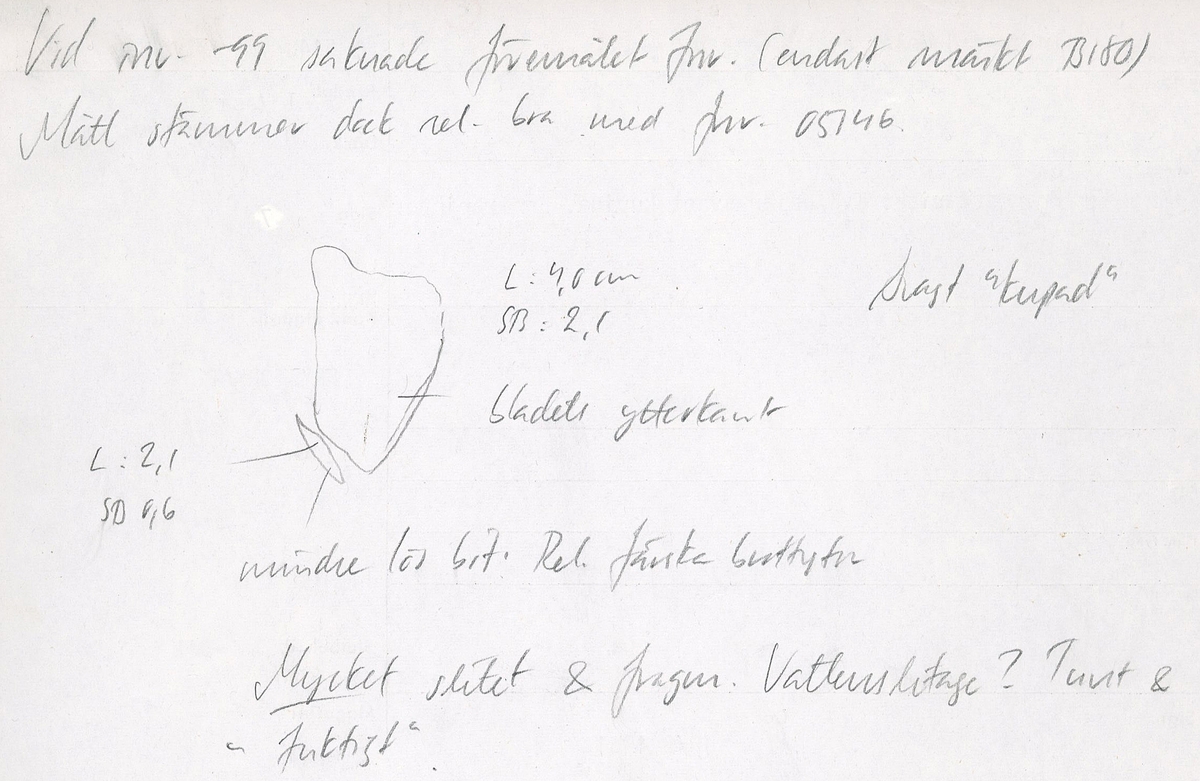 Vid inv. -99 saknade föremålet fnr. (endast märkt B180)
Mått stämmer dock rel. bra med fnr. 05146.
L: 4,0 cm
SB: 2,1
Svagt "kupad"
bladets ytterkant
L: 2,1
SB 0,6
mindre lös bit. Rel. färska brottytor
Mycket slitet & fragm. Vattenslitage? Tunt &
"fuktigt"